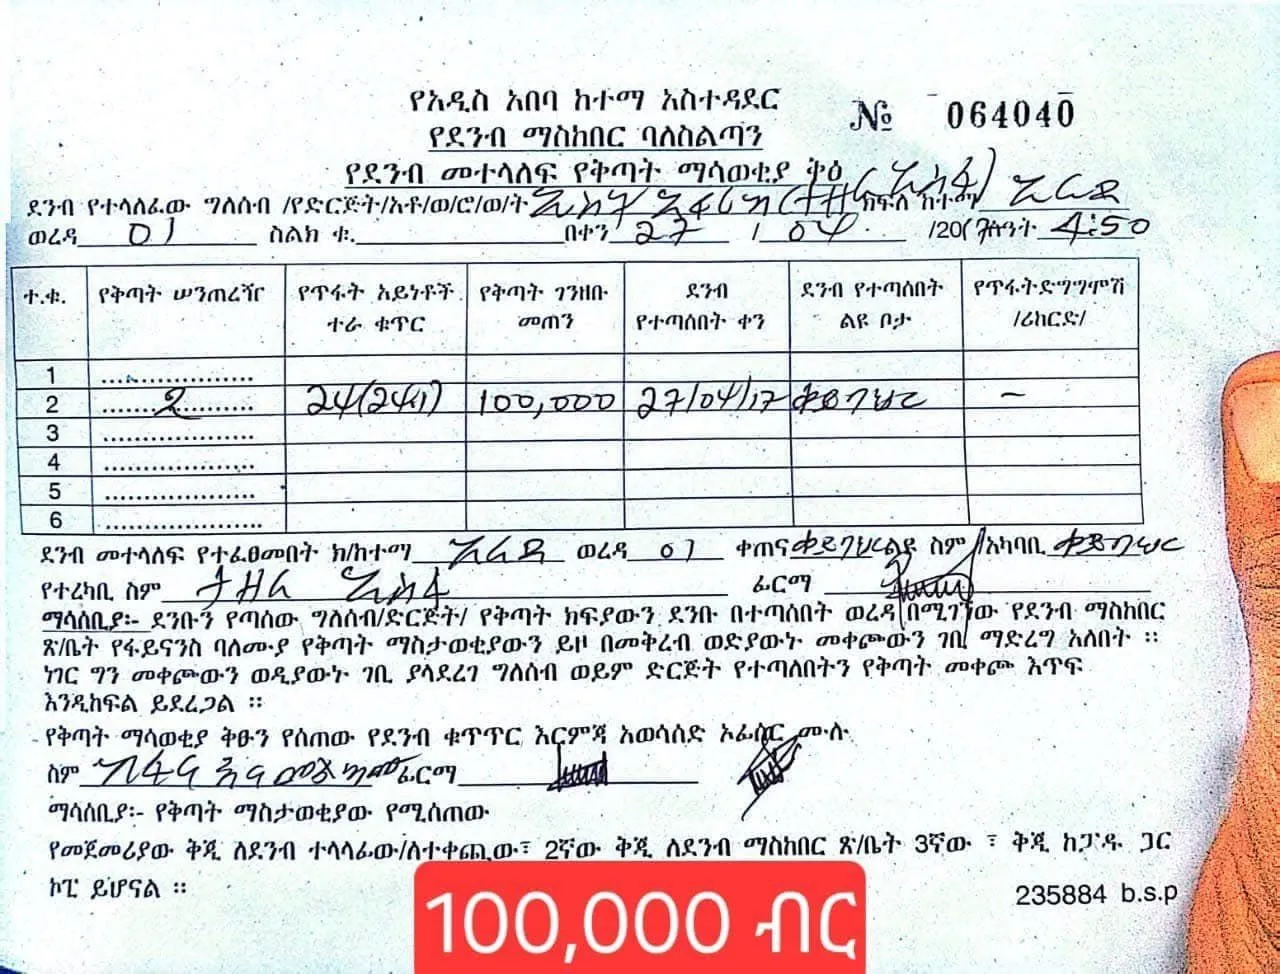 የአዲስ አበባ ከተማ አስተዳደር
የደንብ ማስከበር ባለስልጣን
№ 064040
የደንብ መተላለፍ የቅጣት ማሳወቂያ ቅፅ
ደንብ የተላለፈው ግለሰብ /የድርጅት/አቶ/ወ/ሮ/ወ/ት ክፍለ ከተማ አራዳ
ወረዳ 01 ስልክ ቁ. በቀን 27 / 04 /20 ሰዓት 4:50
ተ.ቁ. የቅጣት ሠንጠረዥ የጥፋት አይነቶች ተራ ቁጥር የቅጣት ገንዘቡ መጠን ደንብ የተጣሰበት ቀን ደንብ የተጣሰበት ልዩ ቦታ የጥፋትድግግሞሽ /ሪከርድ/
1
2 2 24(241) 100,000 27/04/17 –
3
4
5
6
ደንብ መተላለፍ የተፈፀመበት ክ/ከተማ አራዳ ወረዳ 01 ቀጠና ልዩ ስም/አካባቢ
የተረካቢ ስም ታዘር አሰፋ ፊርማ
ማሳሰቢያ፡- ደንቡን የጣሰው ግለሰብ/ድርጅት/ የቅጣት ክፍያውን ደንቡ በተጣሰበት ወረዳ በሚገኘው የደንብ ማስከበር
ጽ/ቤት የፋይናንስ ባለሙያ የቅጣት ማስታወቂያውን ይዞ በመቅረብ ወድያውኑ መቀጮውን ገቢ ማድረግ አለበት ።
ነገር ግን መቀጮውን ወዲያውኑ ገቢ ያላደረገ ግለሰብ ወይም ድርጅት የተጣለበትን የቅጣት መቀጮ እጥፍ
እንዲከፍል ይደረጋል ።
የቅጣት ማሳወቂያ ቅፁን የሰጠው የደንብ ቁጥጥር እርምጃ አወሳሰድ ኦፊሰር ሙሉ
ስም ፊርማ
ማሳሰቢያ፡- የቅጣት ማስታወቂያው የሚሰጠው
የመጀመሪያው ቅጂ ለደንብ ተላላፊው/ለተቀጪው፣ 2ኛው ቅጂ ለደንብ ማስከበር ጽ/ቤት 3ኛው ፣ ቅጂ ከፓዱ ጋር
ኮፒ ይሆናል ።
235884 b.s.p
100,000 ብር